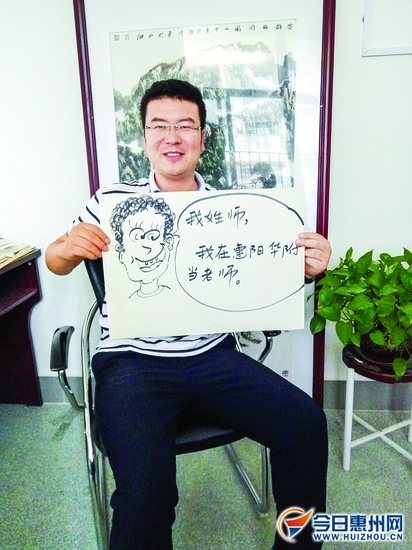 我姓师，
我在惠阳华附
当老师。
今日惠州网
WWW.HUIZHOU.CN